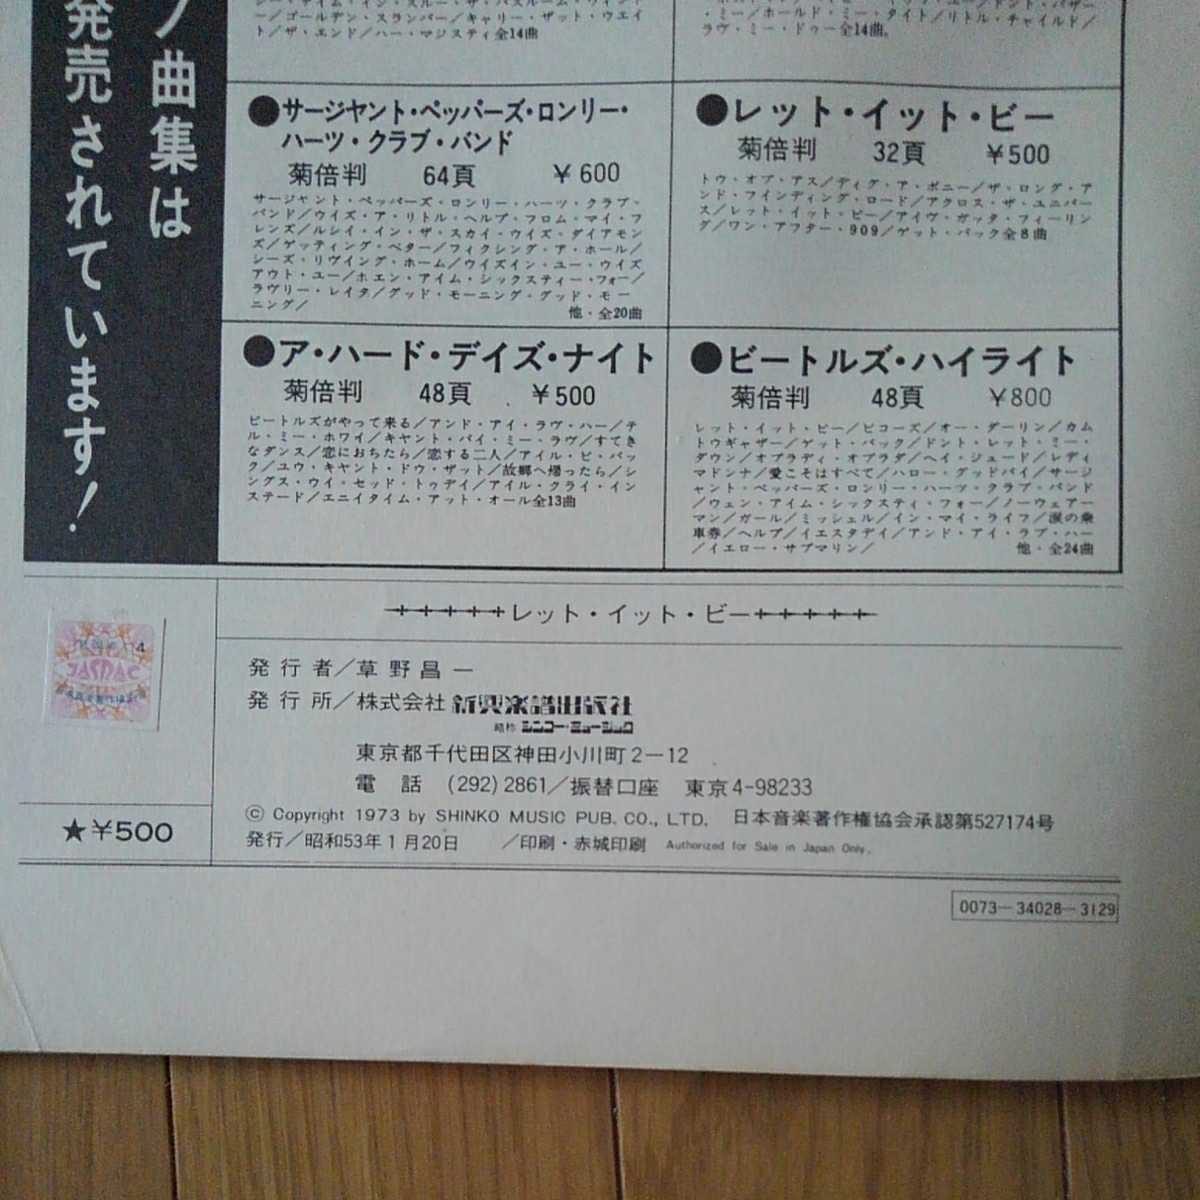 ノ曲集は
発売されています！
ー/ゴールデン・スランバー/キャリー・ザット・ウエイ
ト/ザ・エンド/ハー・マジスティ全14曲
・ミー/ホールド・ミー・タイト/リトル・チャイルド/
ラヴ・ミー・ドゥー全14曲。
●サージャント・ペッパーズ・ロンリー・
ハーツ・クラブ・バンド
菊倍判 64頁 ￥600
サージャント・ペッパーズ・ロンリー・ハーツ・クラブ・
バンド/ウイズ・ア・リトル・ヘルプ・フロム・マイ・フ
レンズ/ルシイ・イン・ザ・スカイ・ウイズ・ダイアモン
ズ/ゲッティング・ベター/フィクシング・ア・ホール/
シーズ・リヴィング・ホーム/ウイズイン・ユー・ウイズ
アウト・ユー/ホエン・アイム・シックスティー・フォー/
ラヴリー・レイタ/グッド・モーニング・グッド・モー
ニング/ 他・全20曲
●レット・イット・ビー
菊倍判 32頁 ￥500
トウ・オブ・アス/ディグ・ア・ポニー/ザ・ロング・ア
ンド・ワインディング・ロード/アクロス・ザ・ユニバー
ス/レット・イット・ビー/アイヴ・ガッタ・フィーリン
グ/ワン・アフター・909/ゲット・バック全8曲
●ア・ハード・デイズ・ナイト
菊倍判 48頁 ￥500
ビートルズがやって来る/アンド・アイ・ラヴ・ハー/テ
ル・ミー・ホワイ/キャント・バイ・ミー・ラヴ/すてき
なダンス/恋におちたら/恋する二人/アイル・ビ・バッ
ク/ユウ・キャント・ドウ・ザット/故郷へ帰ったら/シ
ングス・ウイ・セッド・トゥデイ/アイル・クライ・イン
ステード/エニイタイム・アット・オール全13曲
●ビートルズ・ハイライト
菊倍判 48頁 ￥800
レット・イット・ビー/ビコーズ/オー・ダーリン/カム
トウギャザー/ゲット・バック/ドント・レット・ミー・
ダウン/オブラディ・オブラダ/ヘイ・ジュード/レディ
マドンナ/愛こそはすべて/ハロー・グッドバイ/サージ
ャント・ペッパーズ・ロンリー・ハーツ・クラブ・バンド
/ウェン・アイム・シックスティ・フォー/ノーウェアー
マン/ガール/ミッシェル/イン・マイ・ライフ/涙の乗
車券/ヘルプ/イエスタデイ/アンド・アイ・ラブ・ハー
/イエロー・サブマリン/ 他・全24曲
レット・イット・ビー
JASRAC
発行者/草野昌一
発行所/株式会社 新興楽譜出版社
略称 シンコー・ミュージック
東京都千代田区神田小川町2－12
電話 (292)2861/振替口座 東京4-98233
© Copyright 1973 by SHINKO MUSIC PUB. CO., LTD. 日本音楽著作権協会承認第527174号
発行/昭和53年1月20日 /印刷・赤城印刷 Authorized for Sale in Japan Only.
★￥500
0073－34028－3129